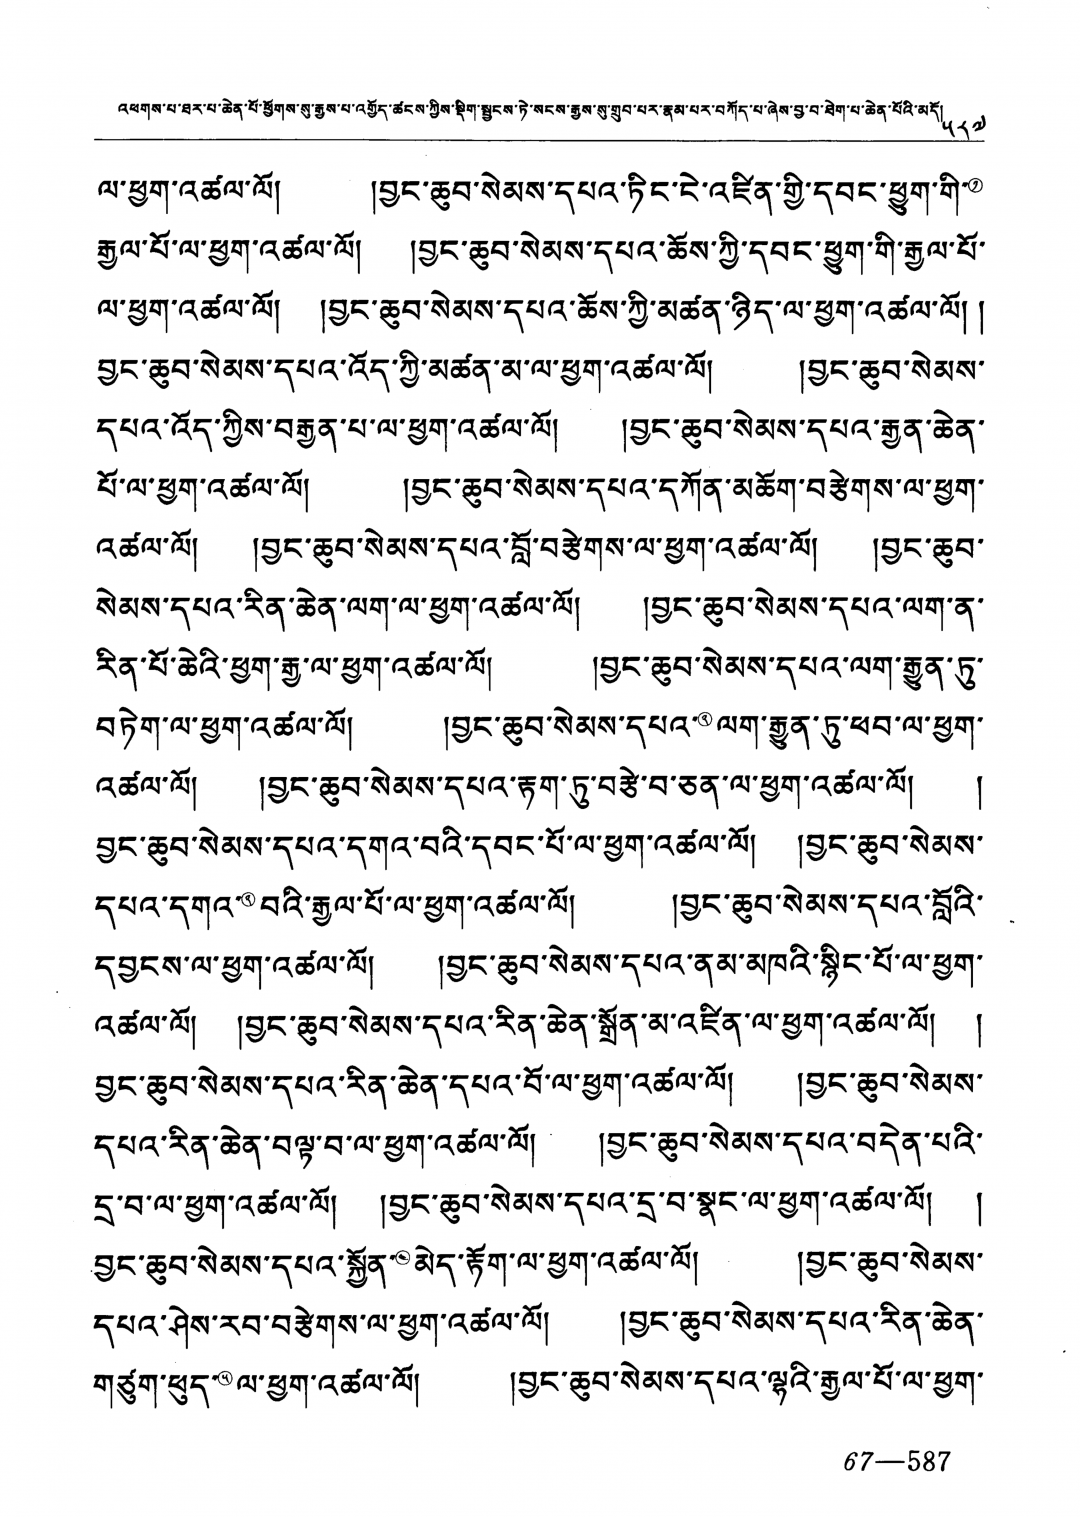 འཕགས་པ་ཐར་པ་ཆེན་པོ་ཕྱོགས་སུ་རྒྱས་པ་འགྱོད་ཚངས་ཀྱིས་སྡིག་སྦྱངས་ཏེ་སངས་རྒྱས་སུ་གྲུབ་པར་རྣམ་པར་བཀོད་པ་ཞེས་བྱ་བ་ཐེག་པ་ཆེན་པོའི་མདོ། ༥༨༧
ལ་ཕྱག་འཚལ་ལོ། །བྱང་ཆུབ་སེམས་དཔའ་ཏིང་ངེ་འཛིན་གྱི་དབང་ཕྱུག་གི་①
རྒྱལ་པོ་ལ་ཕྱག་འཚལ་ལོ། །བྱང་ཆུབ་སེམས་དཔའ་ཆོས་ཀྱི་དབང་ཕྱུག་གི་རྒྱལ་པོ་
ལ་ཕྱག་འཚལ་ལོ། །བྱང་ཆུབ་སེམས་དཔའ་ཆོས་ཀྱི་མཚན་ཉིད་ལ་ཕྱག་འཚལ་ལོ། །
བྱང་ཆུབ་སེམས་དཔའ་འོད་ཀྱི་མཚན་མ་ལ་ཕྱག་འཚལ་ལོ། །བྱང་ཆུབ་སེམས་
དཔའ་འོད་ཀྱིས་བརྒྱན་པ་ལ་ཕྱག་འཚལ་ལོ། །བྱང་ཆུབ་སེམས་དཔའ་རྒྱན་ཆེན་
པོ་ལ་ཕྱག་འཚལ་ལོ། །བྱང་ཆུབ་སེམས་དཔའ་དཀོན་མཆོག་བརྩེགས་ལ་ཕྱག་
འཚལ་ལོ། །བྱང་ཆུབ་སེམས་དཔའ་བློ་བརྩེགས་ལ་ཕྱག་འཚལ་ལོ། །བྱང་ཆུབ་
སེམས་དཔའ་རིན་ཆེན་ལག་ལ་ཕྱག་འཚལ་ལོ། །བྱང་ཆུབ་སེམས་དཔའ་ལག་ན་
རིན་པོ་ཆེའི་ཕྱག་རྒྱ་ལ་ཕྱག་འཚལ་ལོ། །བྱང་ཆུབ་སེམས་དཔའ་ལག་རྒྱུན་ཏུ་
བཏེག་ལ་ཕྱག་འཚལ་ལོ། །བྱང་ཆུབ་སེམས་དཔའ་②ལག་རྒྱུན་ཏུ་ཕབ་ལ་ཕྱག་
འཚལ་ལོ། །བྱང་ཆུབ་སེམས་དཔའ་རྟག་ཏུ་བརྩེ་བ་ཅན་ལ་ཕྱག་འཚལ་ལོ། །
བྱང་ཆུབ་སེམས་དཔའ་དགའ་བའི་དབང་པོ་ལ་ཕྱག་འཚལ་ལོ། །བྱང་ཆུབ་སེམས་
དཔའ་དགའ་③བའི་རྒྱལ་པོ་ལ་ཕྱག་འཚལ་ལོ། །བྱང་ཆུབ་སེམས་དཔའ་བློའི་
དབྱངས་ལ་ཕྱག་འཚལ་ལོ། །བྱང་ཆུབ་སེམས་དཔའ་ནམ་མཁའི་སྙིང་པོ་ལ་ཕྱག་
འཚལ་ལོ། །བྱང་ཆུབ་སེམས་དཔའ་རིན་ཆེན་སྒྲོན་མ་འཛིན་ལ་ཕྱག་འཚལ་ལོ། །
བྱང་ཆུབ་སེམས་དཔའ་རིན་ཆེན་དཔའ་བོ་ལ་ཕྱག་འཚལ་ལོ། །བྱང་ཆུབ་སེམས་
དཔའ་རིན་ཆེན་བལྟ་བ་ལ་ཕྱག་འཚལ་ལོ། །བྱང་ཆུབ་སེམས་དཔའ་བདེན་པའི་
དྲ་བ་ལ་ཕྱག་འཚལ་ལོ། །བྱང་ཆུབ་སེམས་དཔའ་དྲ་བ་སྣང་ལ་ཕྱག་འཚལ་ལོ། །
བྱང་ཆུབ་སེམས་དཔའ་སྐྱོན་④མེད་རྟོག་ལ་ཕྱག་འཚལ་ལོ། །བྱང་ཆུབ་སེམས་
དཔའ་ཤེས་རབ་བརྩེགས་ལ་ཕྱག་འཚལ་ལོ། །བྱང་ཆུབ་སེམས་དཔའ་རིན་ཆེན་
གཙུག་ཕུད་⑤ལ་ཕྱག་འཚལ་ལོ། །བྱང་ཆུབ་སེམས་དཔའ་ལྷའི་རྒྱལ་པོ་ལ་ཕྱག་
67—587